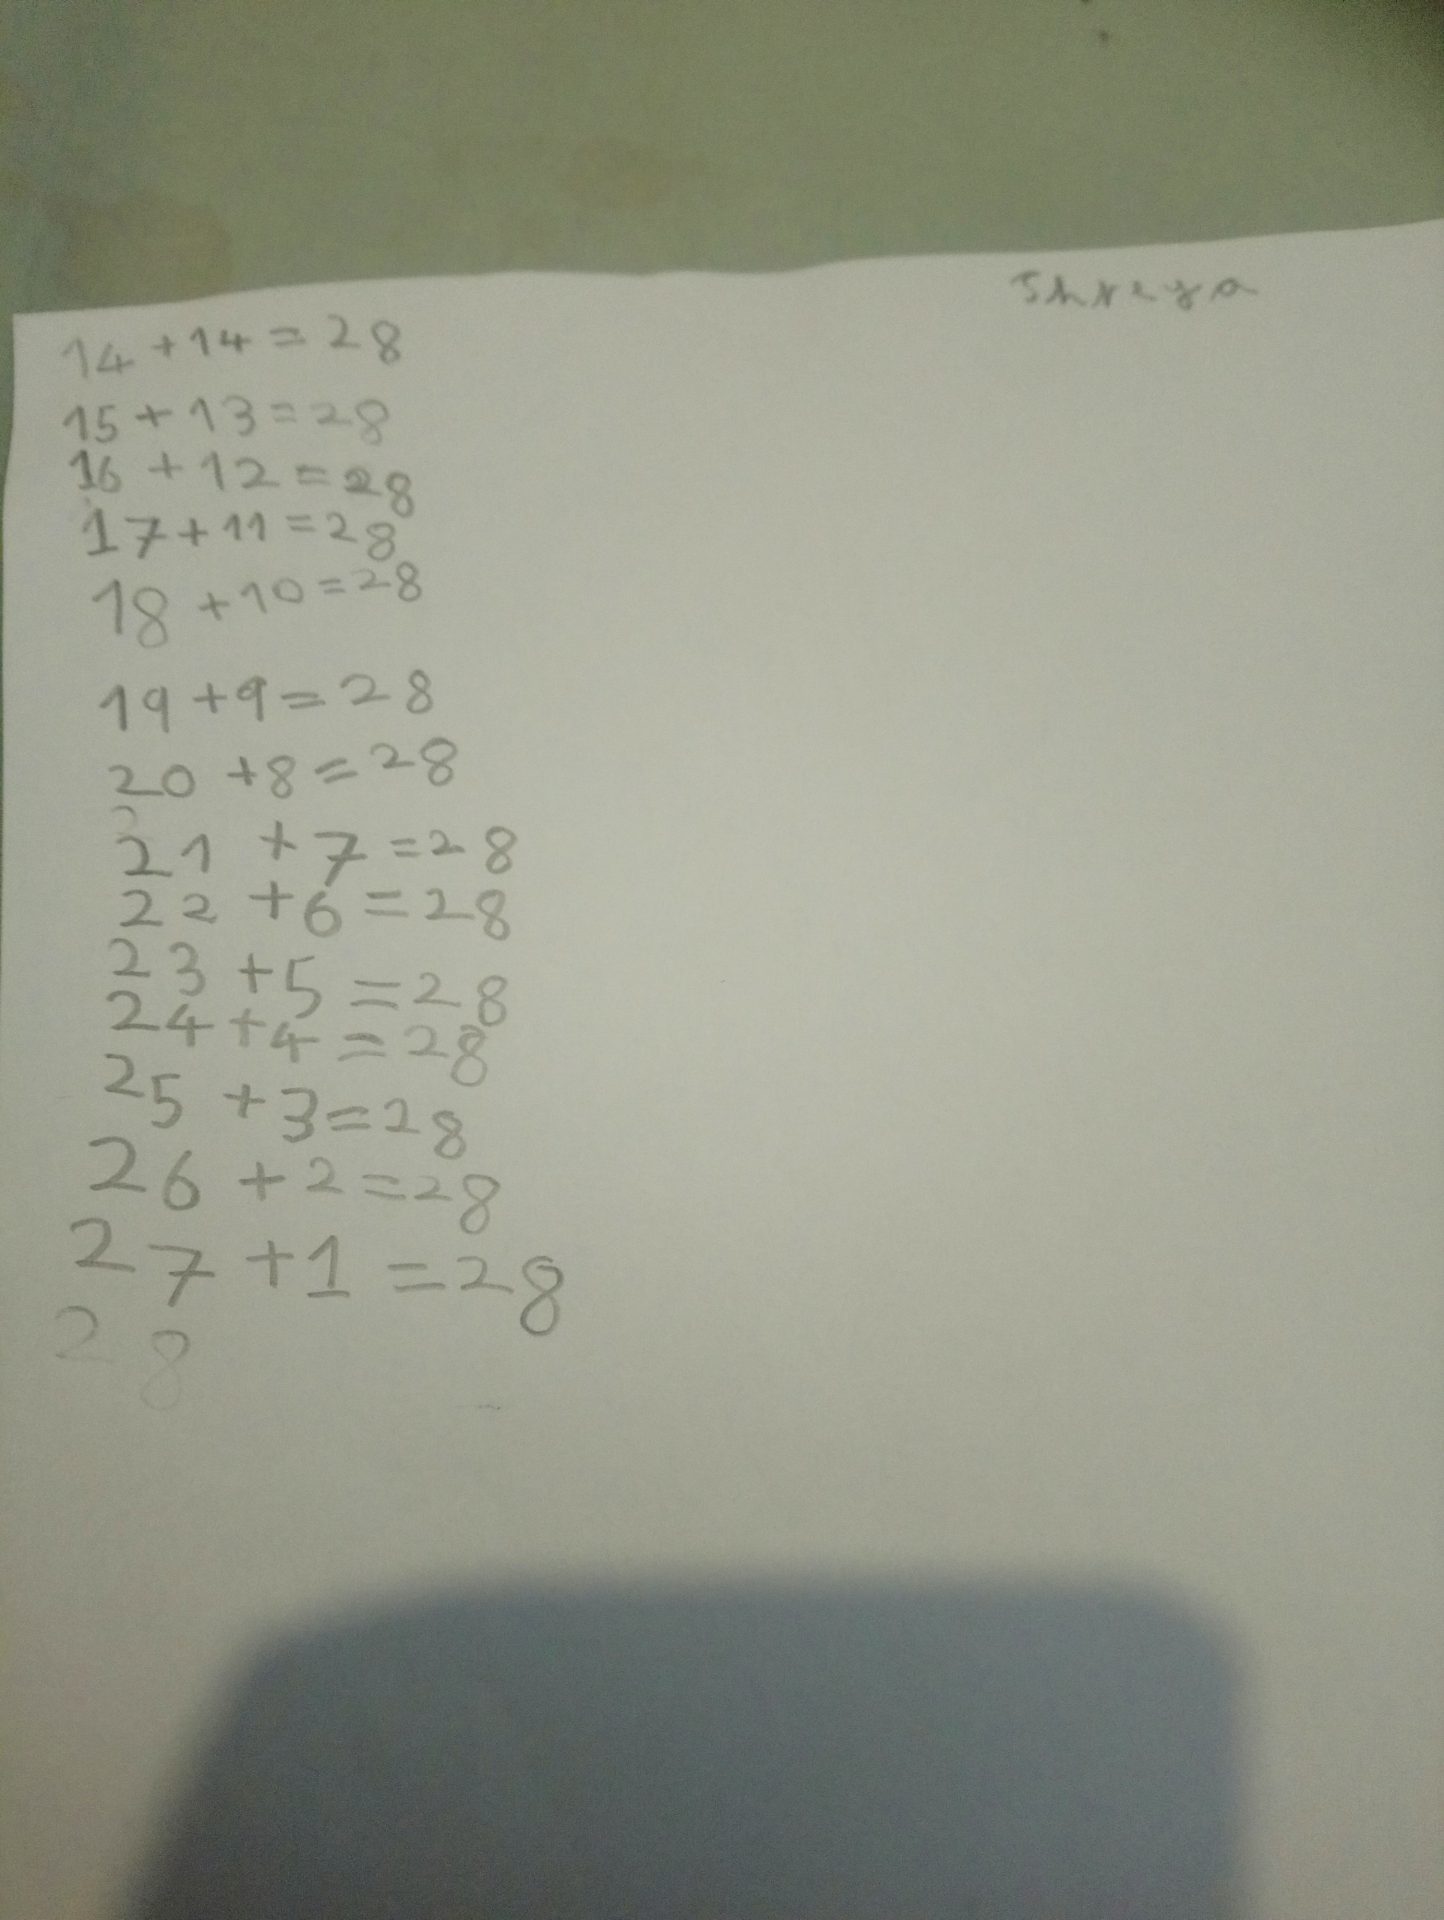 Shreya
14 + 14 = 28
15 + 13 = 28
16 + 12 = 28
17 + 11 = 28
18 + 10 = 28
19 + 9 = 28
20 + 8 = 28
21 + 7 = 28
22 + 6 = 28
23 + 5 = 28
24 + 4 = 28
25 + 3 = 28
26 + 2 = 28
27 + 1 = 28
28